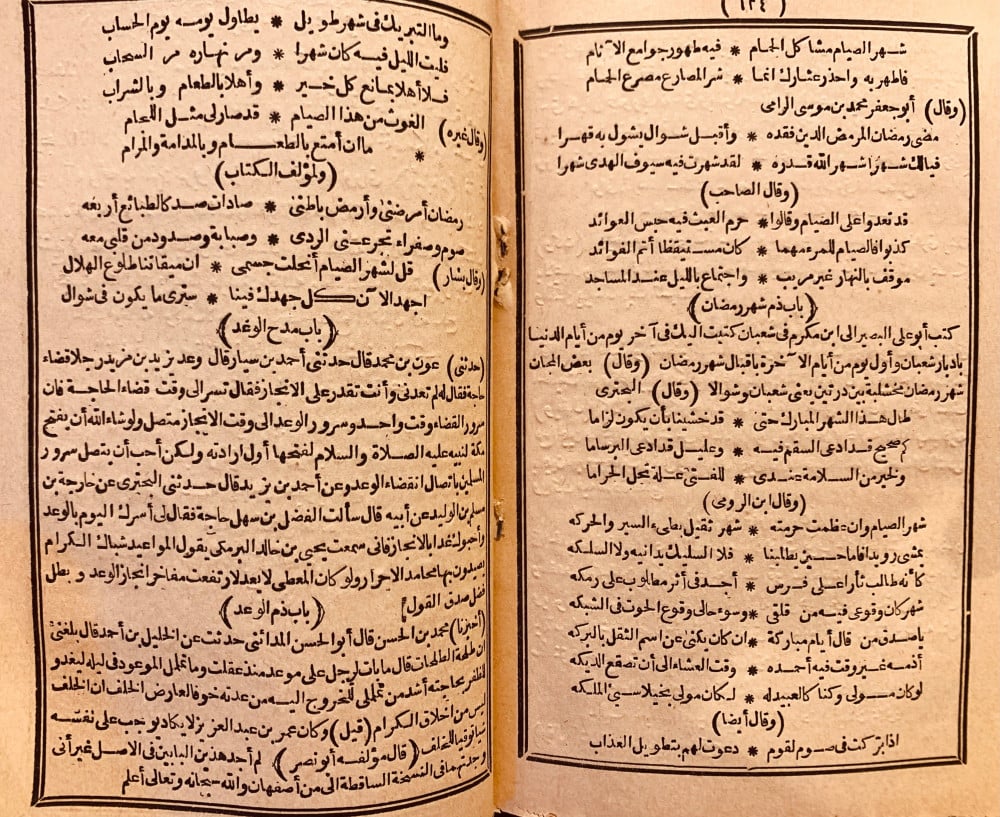 (١٣٤)
شهر الصيام مشاكل الحمام * فيه طهور جوامع الآثام
فاطهر به واحذر عثارك انما * شر المصارع مصرع الحمام
(وقال) أبو جعفر محمد بن موسى الرامى
مضى رمضان المرمض الدين فقده * وأقبل شوال يشول به قهرا
فيالك شهرا شهر الله قدره * لقد شهرت فيه سيوف الهدى شهرا
(وقال الصاحب)
قد تعدوا على الصيام وقالوا * حرم العبث فيه حبس العوائد
كذبوا فالصيام للمرء مهما * كان مستيقظا أتم الفوائد
موقف بالنهار غير مريب * واجتماع بالليل عند المساجد
(باب ذم شهر رمضان)
كتب أبو على البصير الى ابن مكرم فى شعبان كتبت اليك فى آخر يوم من أيام الدنيا
بادبار شعبان وأول يوم من أيام الآخرة باقبال شهر رمضان (وقال) بعض المجان
شهر رمضان بين درتين يعنى شعبان وشوالا (وقال) البحترى
طال هذا الشهر المبارك حتى * قد خشينا بأن يكون لزاما
كم صحيح قد ادعى السقم فيه * وعليل قد ادعى البرساما
ولخير من السلامة عندى * للفتى علة تحل الحراما
(وقال ابن الرومى)
شهر الصيام وان عظمت حرمته * شهر ثقيل بطىء السير والحركه
يمشى رويدا فاما حين يطلبنا * فلا السليك يدانيه ولا السلكه
كأنه طالب ثارا على فرس * أجد فى أثر مطلوب على رمكه
شهر كان وقوعى فيه من قلقى * وسوء حالى وقوع الحوت فى الشبكه
يا صدق من قال أيام مباركة * ان كان يكنى عن اسم الثقل بالبركه
أذمه غير وقت فيه أحمده * وقت العشاء الى أن تصقع الديكه
لو كان مولى وكنا كالعبيد له * لكان مولى بخيلا سيئ الملكه
(وقال أيضا)
اذا بركت فى صوم لقوم * دعوت لهم بتطويل العذاب
وما التبريك فى شهر طويل * يطاول يومه يوم الحساب
فليت الليل فيه كان شهرا * ومر نهاره مر السحاب
فلا أهلا بمانع كل خير * وأهلا بالطعام وبالشراب
(وقال غيره) الغوث من هذا الصيام * قد صار لى مثل اللجام
ما ان أمتع بالطعام * وبالمدامة والمرام
(ولمؤلف الكتاب)
رمضان أمرضنى وأرمض باطنى * صادات صد كالطبائع أربعه
صوم وصفراء تجرعنى الردى * وصبابة وصدود من قلبى معه
(وقال بشار) قل لشهر الصيام أنحلت جسمى * ان ميقاتنا طلوع الهلال
اجهد الآن كل جهدك فينا * سترى ما يكون فى شوال
(باب مدح الوعد)
(حدثنى) عون بن محمد قال حدثنى أحمد بن سيار قال وعد يزيد بن مزيد رجلا قضاء
حاجة فقال له لم تعدنى وأنت تقدر على الانجاز فقال تسر الى وقت قضاء الحاجة فان
سرور القضاء وقت واحد وسرور الوعد الى وقت الانجاز متصل ولو شاء الله أن يفتح
مكة لنبيه عليه الصلاة والسلام لفتحها أول ارادته ولكن أحب أن يتصل سرور
المسلمين باتصال انقضاء الوعد وعن أحمد بن يزيد قال حدثنى البحترى عن خارجة بن
مسلم بن الوليد عن أبيه قال سألت الفضل بن سهل حاجة فقال لى أسرك اليوم بالوعد
وأحبوك غدا بالانجاز فانى سمعت يحيى بن خالد البرمكى يقول المواعيد شباك الكرام
يصيدون بها محامد الاحرار ولو كان المعطى لا يعد لارتفعت مفاخر انجاز الوعد وبطل
فضل صدق القول
(باب ذم الوعد)
(أخبرنا) محمد بن الحسن قال أبو الحسن المدائنى حدثت عن الخليل بن أحمد قال بلغنى
ان طلحة الطلحات قال ما بات لرجل على موعد منذ عقلت وما تململ الموعود فى ليله ليغدو
للظفر بحاجته أشد من تململى للخروج اليه من عدته خوفا لعارض الخلف ان الخلف
ليس من اخلاق الكرام (قيل) وكان عمر بن عبد العزيز لا يكاد يوجب على نفسه
ميا توقيا للخلف (قال مؤلفه أبو نصر) لم أجد هذين البابين فى الاصل غير أنى
وجدتهما فى النسخة الساقطة الى من أصفهان والله سبحانه وتعالى أعلم